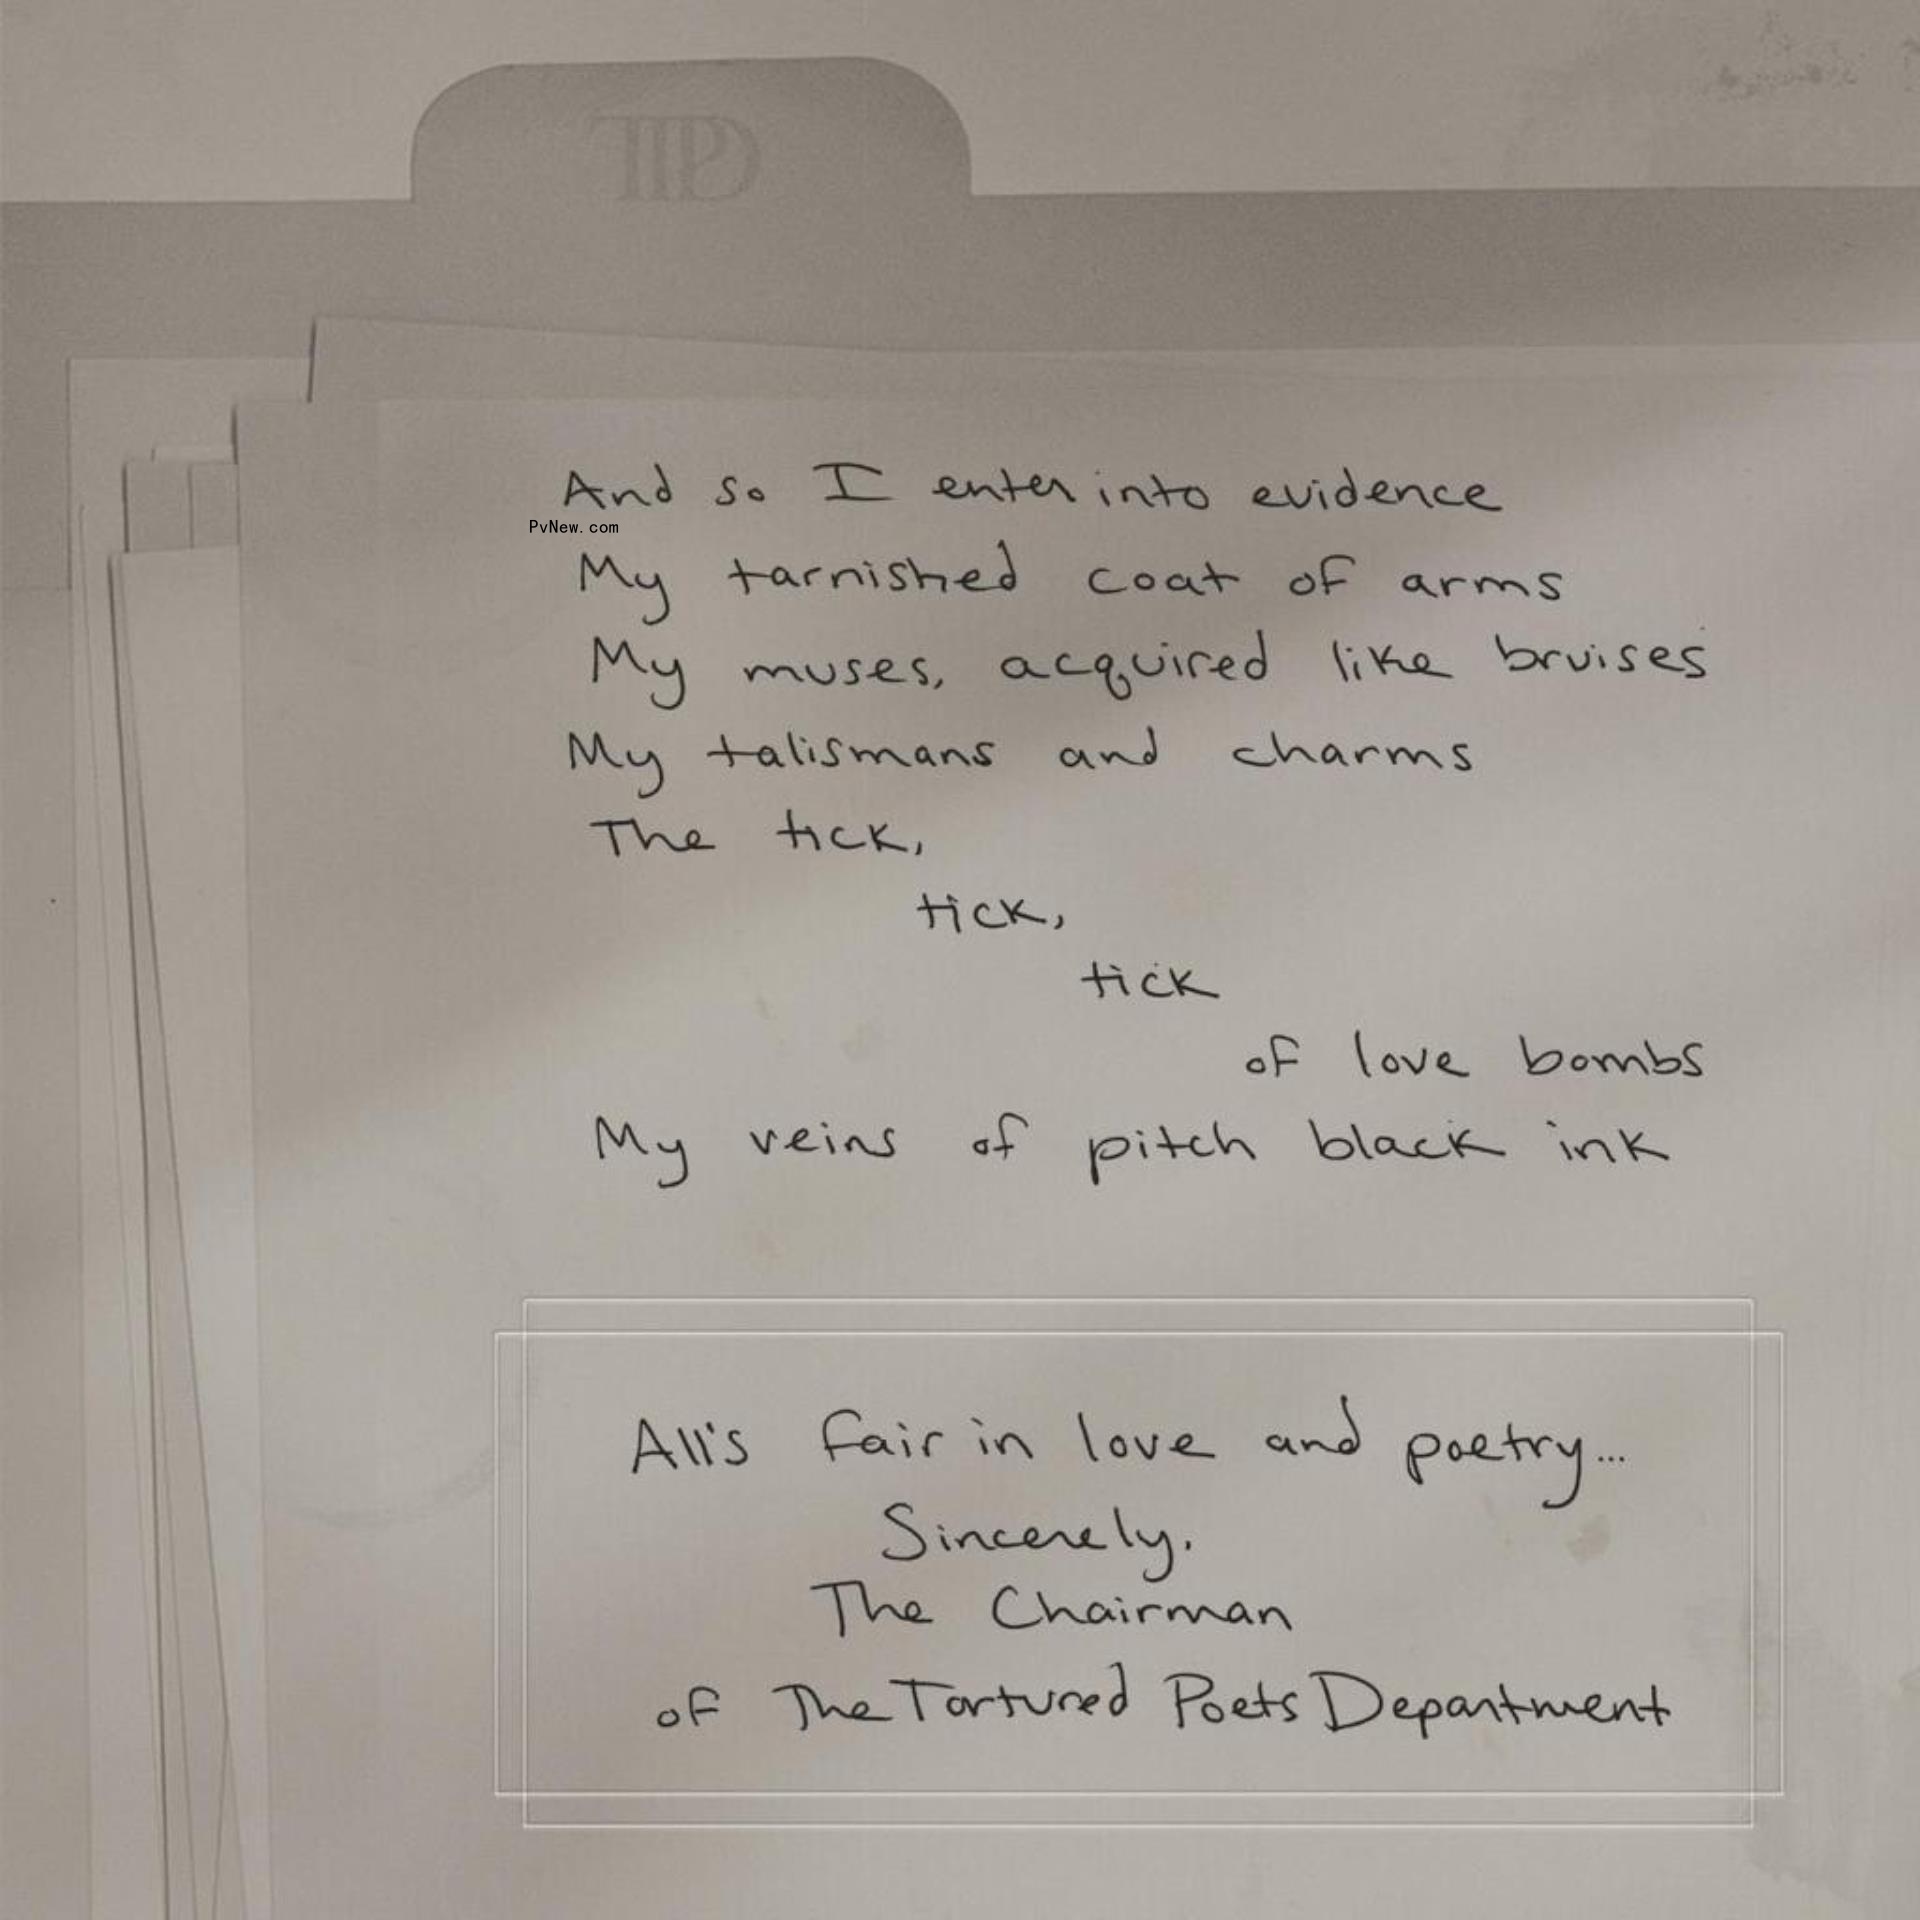 TTPD
And so I enter into evidence
PvNew.com
My tarnished coat of arms
My muses, acquired like bruises
My talismans and charms
The tick,
tick,
tick
of love bombs
My veins of pitch black ink
All's fair in love and poetry...
Sincerely,
The Chairman
of The Tortured Poets Department